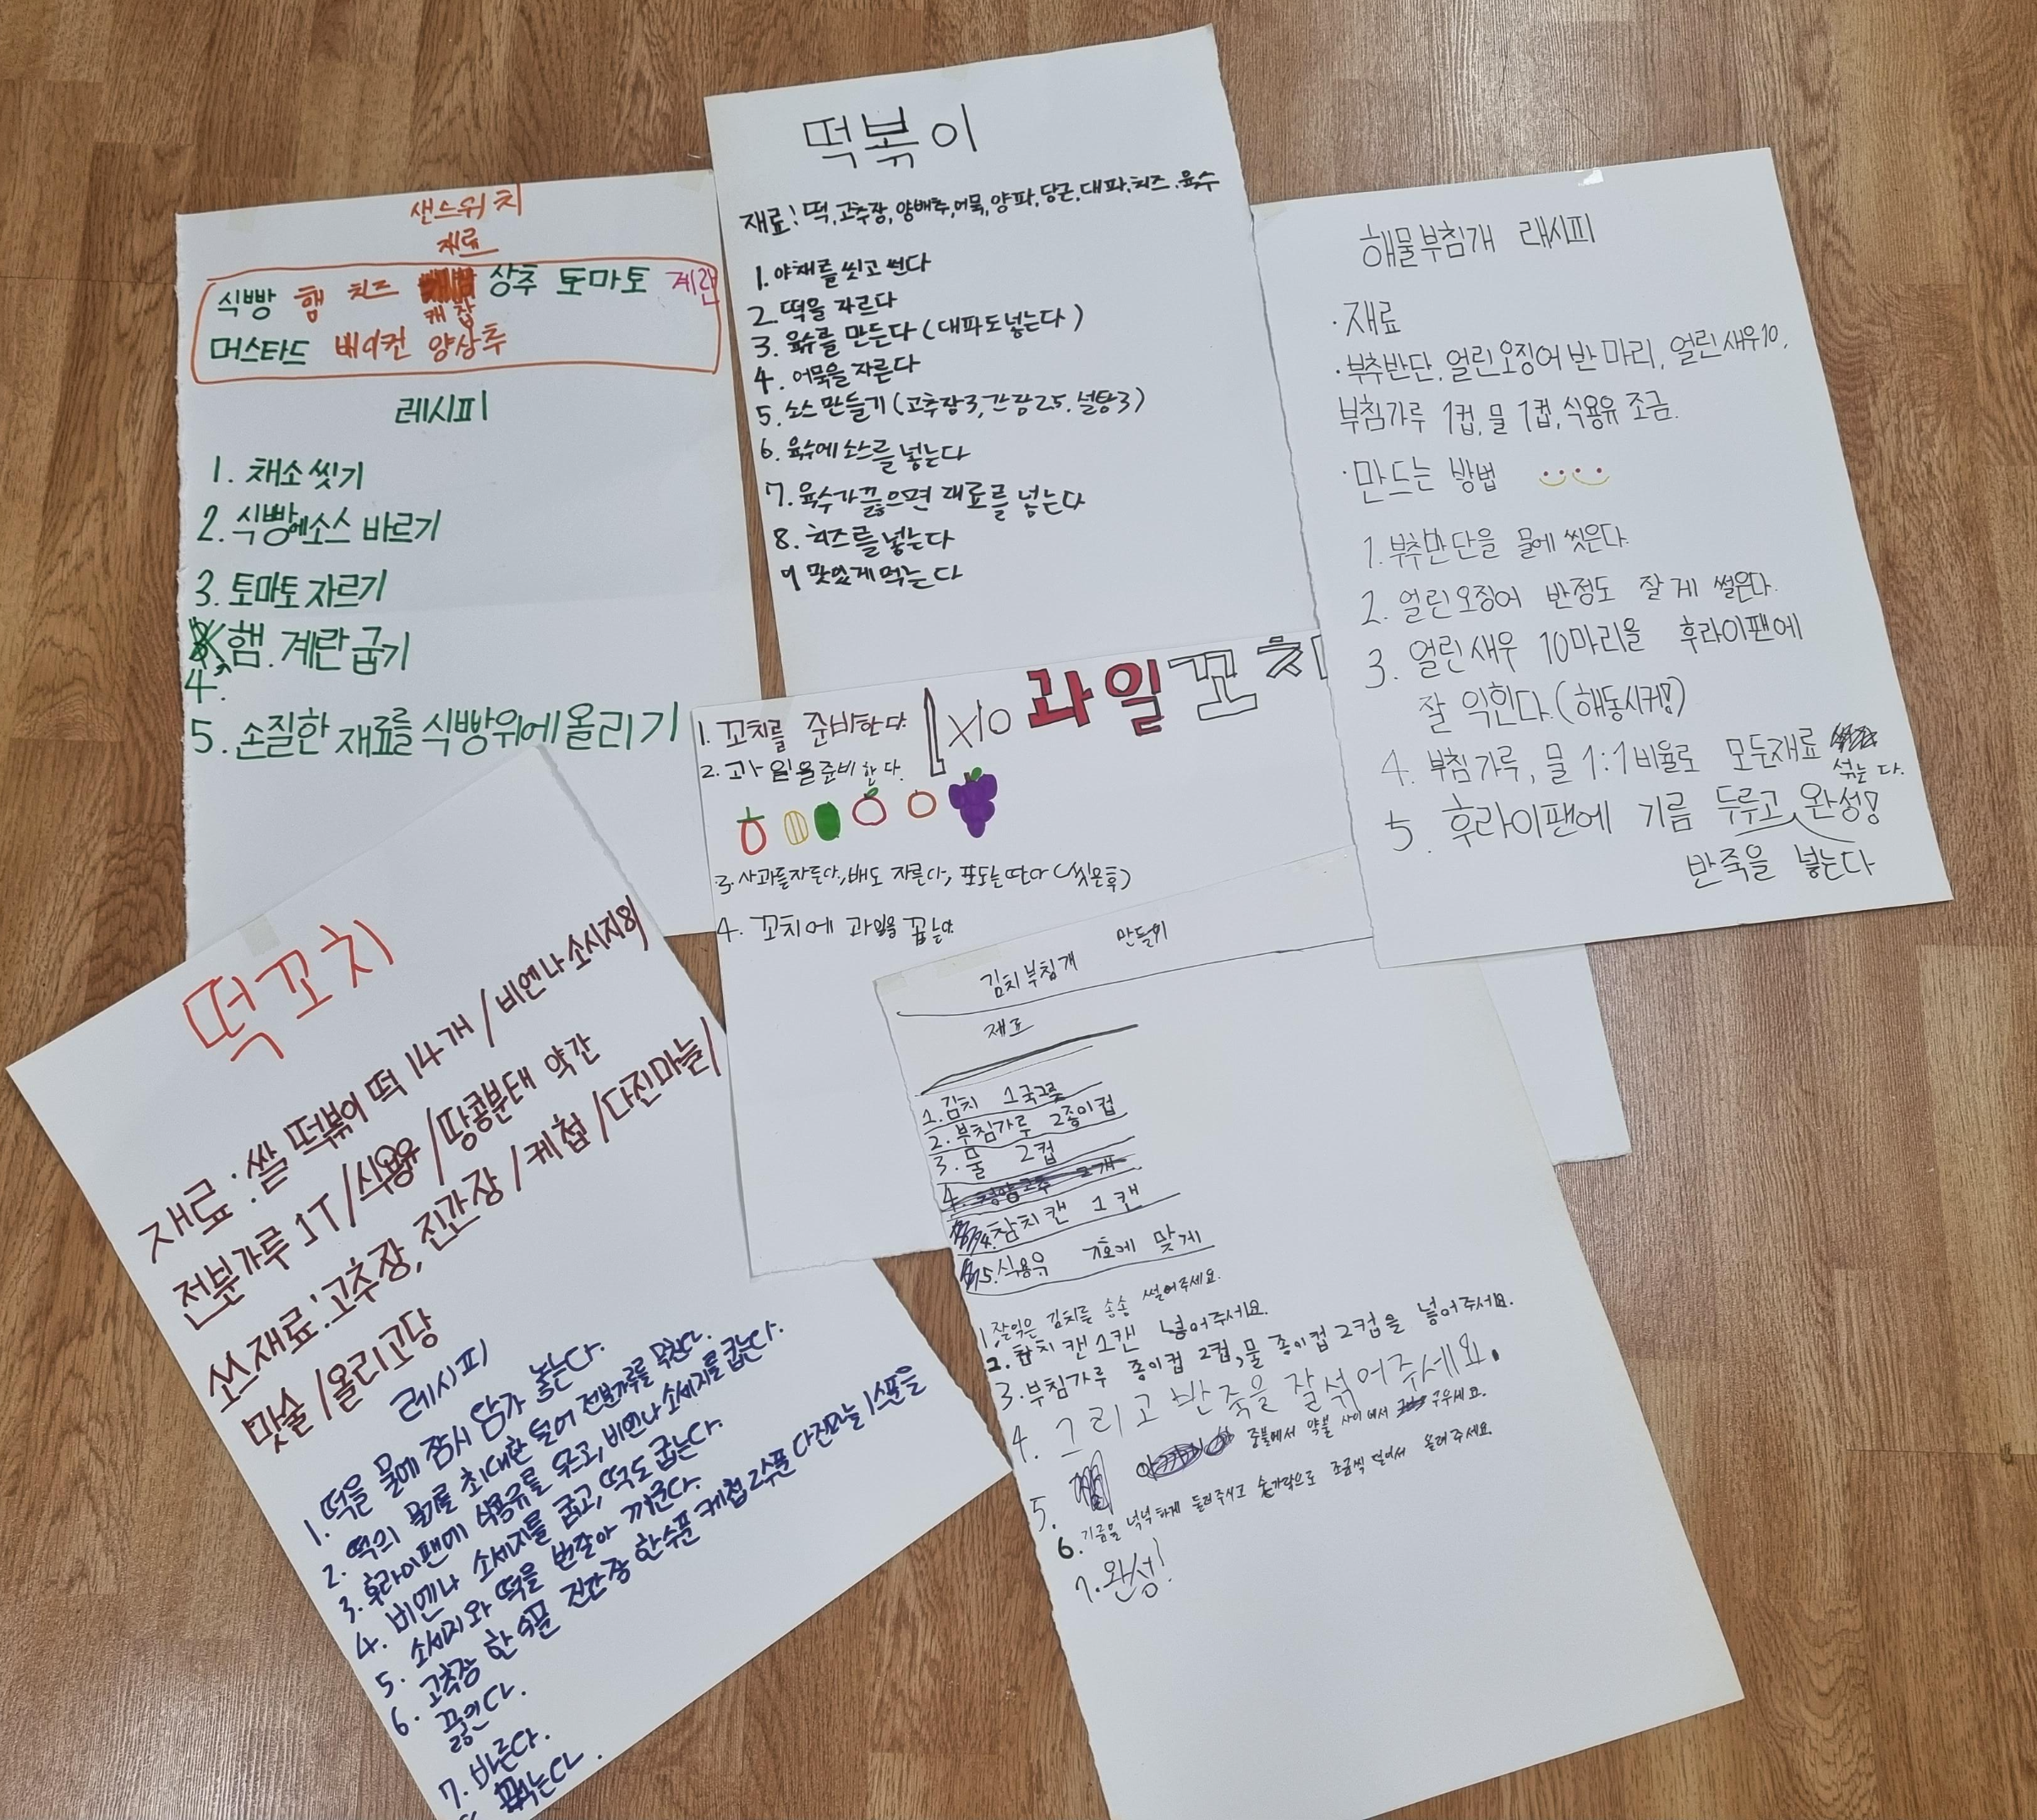 샌드위치
재료
식빵 햄 치즈 상추 토마토 계란
케찹
머스타드 베이컨 양상추
레시피
1. 채소 씻기
2. 식빵에소스 바르기
3. 토마토 자르기
4. 햄. 계란 굽기
5. 손질한 재료를 식빵위에 올리기
떡볶이
재료! 떡, 고추장, 양배추, 어묵, 양파, 당근, 대파, 치즈, 육수
1. 야채를 씻고 썬다
2. 떡을 자르다
3. 육수를 만든다 (대파도넣는다)
4. 어묵을 자른다
5. 소스 만들기 (고추장3, 간장2.5, 설탕3)
6. 육수에 소스를 넣는다
7. 육수가 끓으면 재료를 넣는다
8. 치즈를 넣는다
9 맛있게 먹는다
해물부침개 래시피
·재료
·부추반단, 얼린오징어 반 마리, 얼린 새우10,
부침가루 1컵, 물 1컵, 식용유 조금.
·만드는 방법
1. 부추반단을 물에 씻은다.
2. 얼린오징어 반정도 잘게 썰은다.
3. 얼린새우 10마리을 후라이팬에
잘 익힌다. (해동시켜!)
4. 부침가루, 물 1:1비율로 모든재료
섞는다.
5. 후라이팬에 기름 두루고 완성!
반죽을 넣는다
과일꼬치
1. 꼬치를 준비한다. X10
2. 과일을준비한다.
3. 사과를자른다, 배도 자른다, 포도는 딴다 (씻은후)
4. 꼬치에 과일을 꼽는다
떡꼬치
재료: 쌀 떡볶이 떡 14개 / 비엔나 소시지8개
전분가루 1T / 식용유 / 땅콩분태 약간
쏘스재료: 고추장, 진간장 / 케첩 / 다진마늘 /
맛술 / 올리고당
레시피
1. 떡을 물에 잠시 담가 놓는다.
2. 떡의 물기를 최대한 털어 전분가루를 묵힌다.
3. 후라이팬에 식용유를 두르고, 비엔나 소세지를 굽는다.
4. 비엔나 소세지를 굽고, 떡도 굽는다.
5. 소세지와 떡을 번갈아 끼운다.
6. 고추장 한 수푼 진간장 한수푼 케첩 2수푼 다진마늘 1스푼을
끓인다.
7. 바른다.
먹는다.
김치부침개 만들이
재료
1. 김치 1국그릇
2. 부침가루 2종이컵
3. 물 2컵
4. 참치캔 1캔
5. 식용유 기호에 맞게
1. 잘익은 김치를 송송 썰어주세요.
2. 참치 캔 1캔 넣어주세요.
3. 부침가루 종이컵 2컵, 물 종이컵 2컵을 넣어주세요.
4. 그리고 반죽을 잘섞어주세요.
5. 중불에서 약불 사이에서 구우세요.
6. 기름을 넉넉하게 둘러주시고 숟가락으로 조금씩 덜어서 올려주세요.
7. 완성!